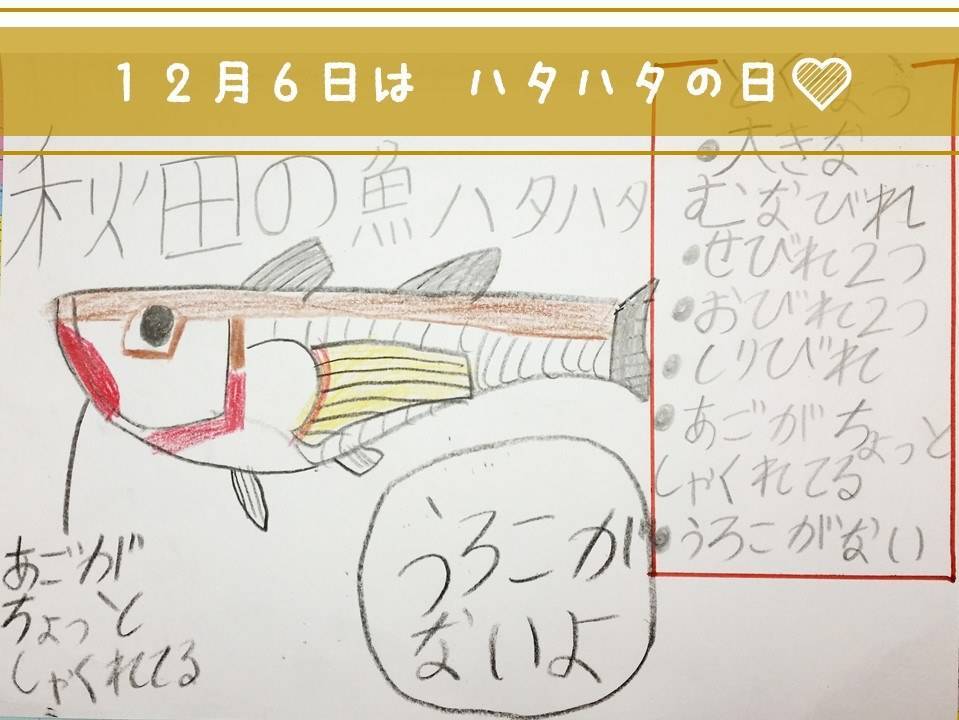 12月6日は ハタハタの日
とくちょう
秋田の魚ハタハタ
●大きな
むなびれ
●せびれ2つ
●おびれ2つ
●しりびれ
●あごがちょっと
しゃくれてる
●うろこがない
あごが
ちょっと
しゃくれてる
うろこが
ないよ